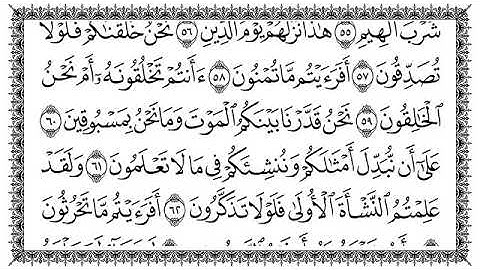 شُرْبَ ٱلْهِيمِ ٥٥ هَٰذَا نُزُلُهُمْ يَوْمَ ٱلدِّينِ ٥٦ نَحْنُ خَلَقْنَٰكُمْ فَلَوْلَا
تُصَدِّقُونَ ٥٧ أَفَرَءَيْتُم مَّا تُمْنُونَ ٥٨ ءَأَنتُمْ تَخْلُقُونَهُۥٓ أَمْ نَحْنُ
ٱلْخَٰلِقُونَ ٥٩ نَحْنُ قَدَّرْنَا بَيْنَكُمُ ٱلْمَوْتَ وَمَا نَحْنُ بِمَسْبُوقِينَ ٦٠
عَلَىٰٓ أَن نُّبَدِّلَ أَمْثَٰلَكُمْ وَنُنشِئَكُمْ فِى مَا لَا تَعْلَمُونَ ٦١ وَلَقَدْ
عَلِمْتُمُ ٱلنَّشْأَةَ ٱلْأُولَىٰ فَلَوْلَا تَذَكَّرُونَ ٦٢ أَفَرَءَيْتُم مَّا تَحْرُثُونَ